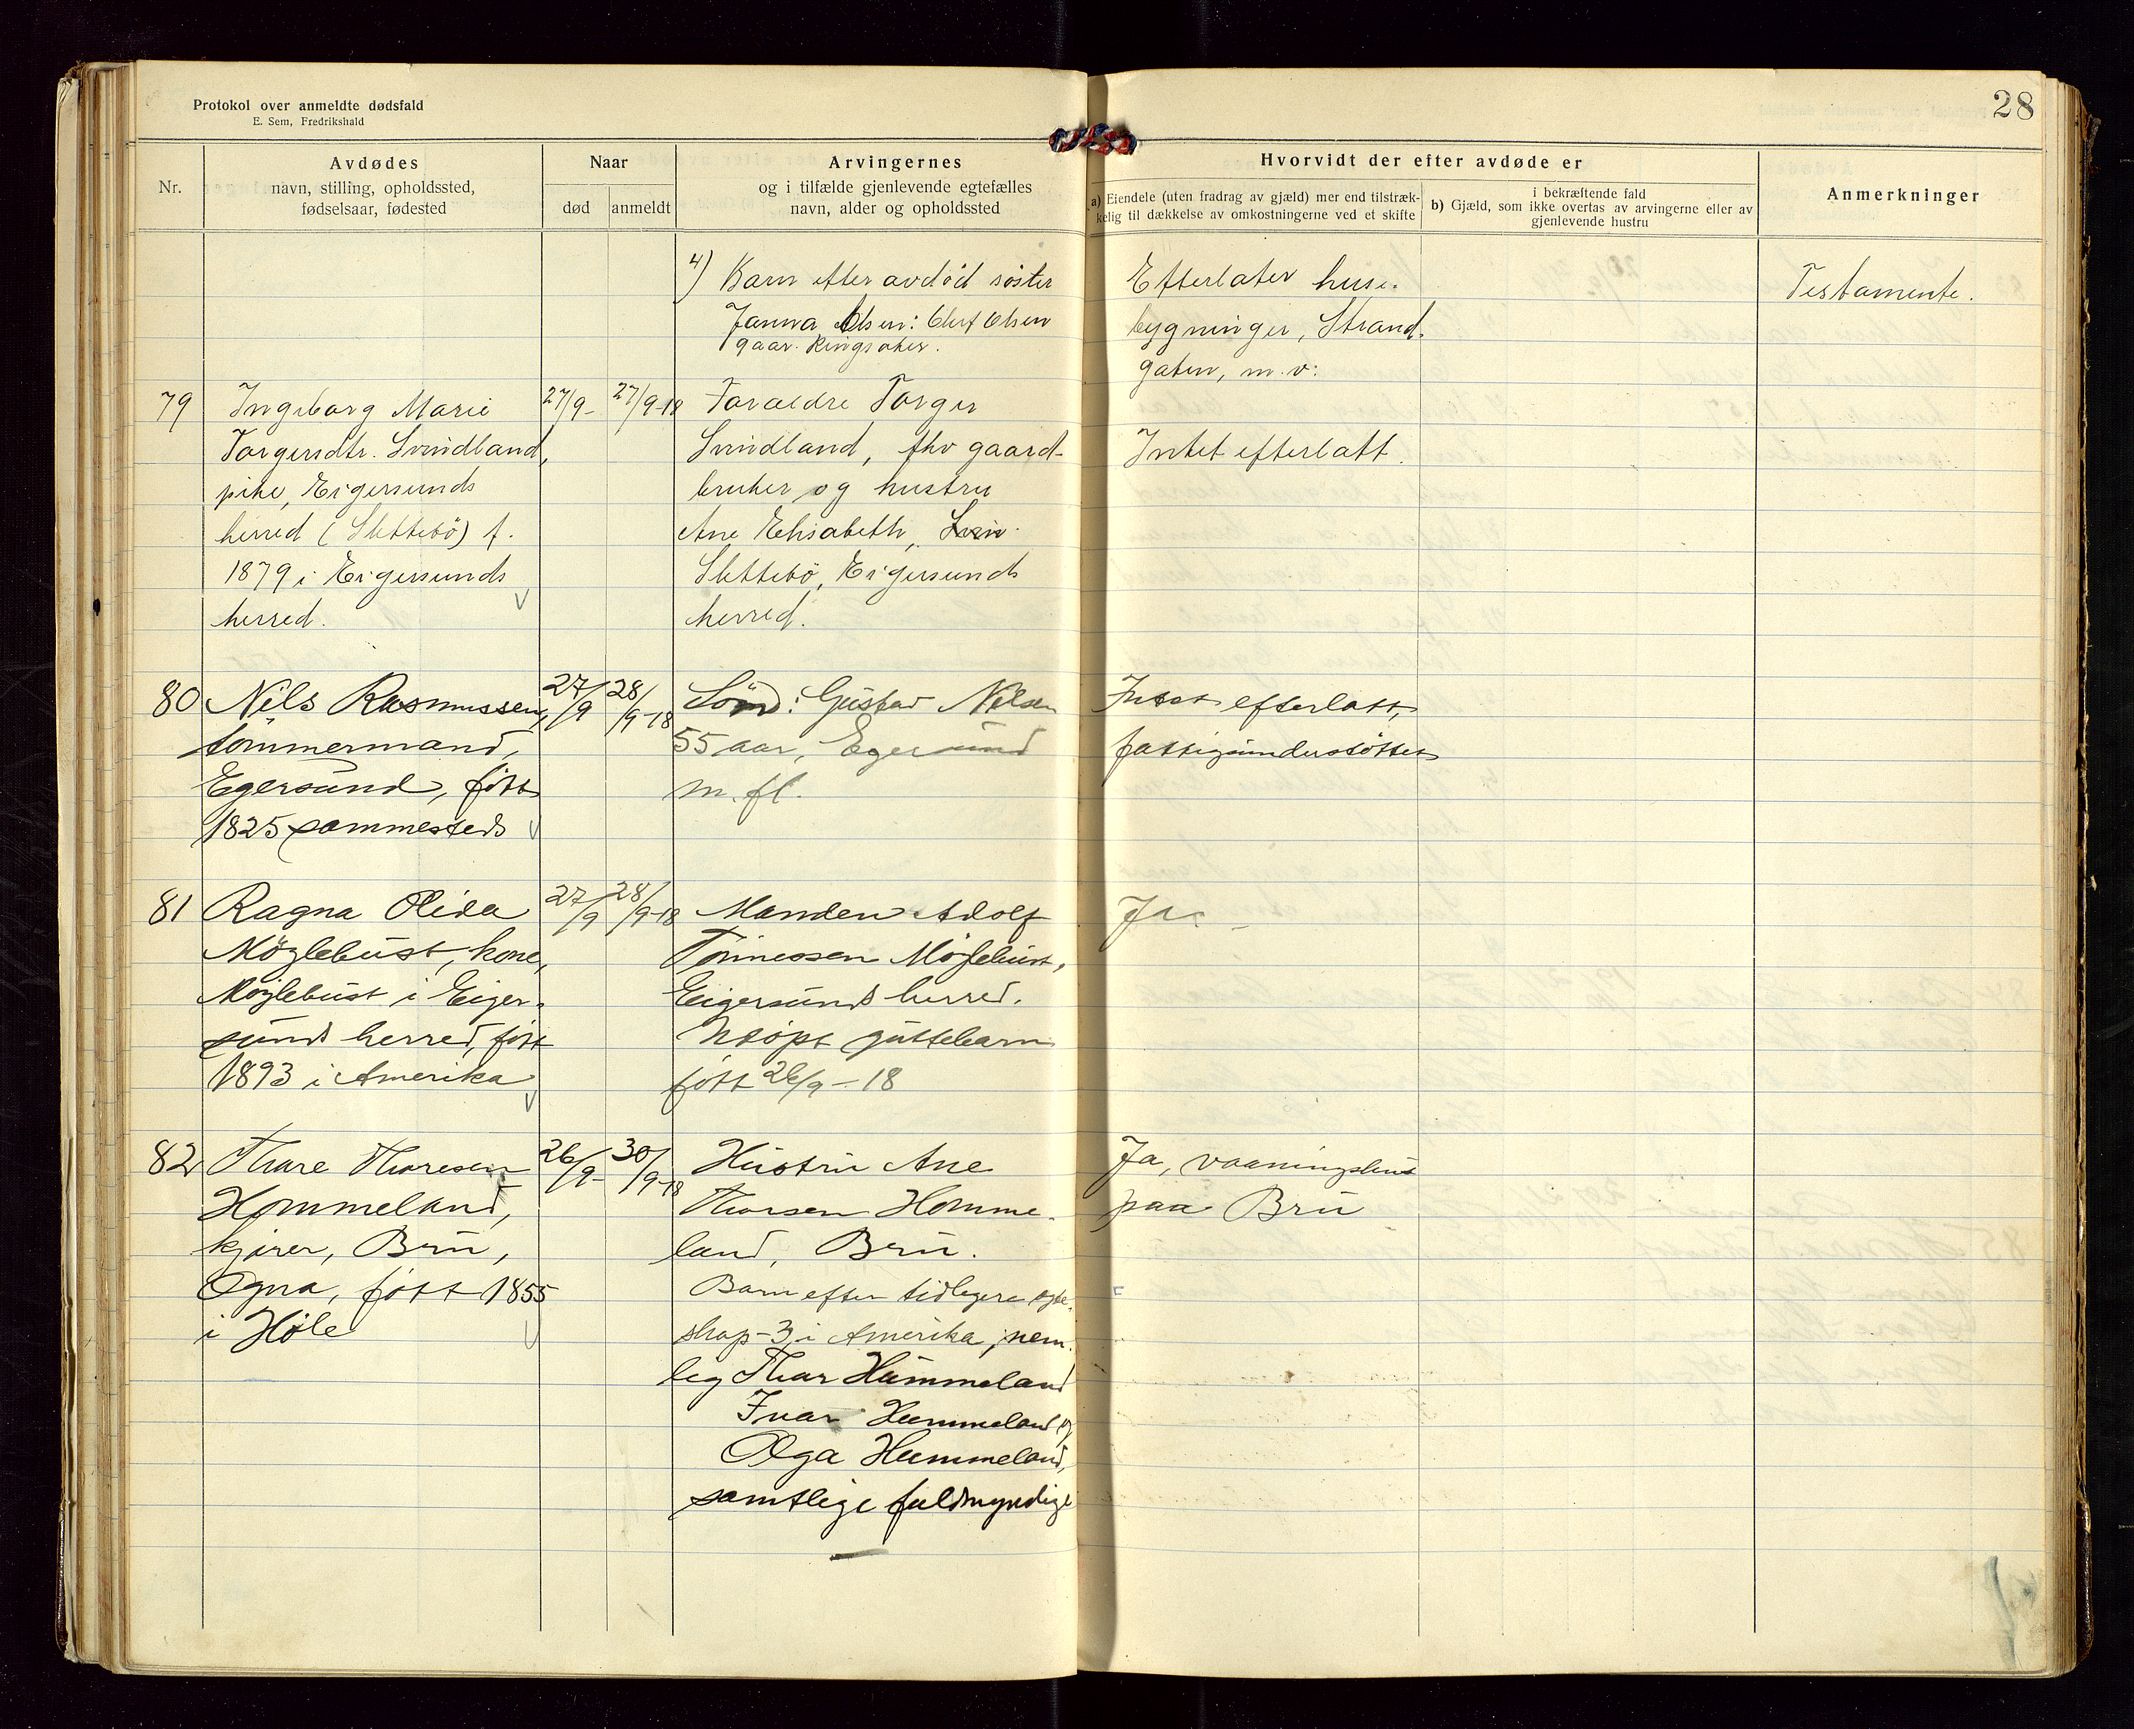 Protokol over anmeldte dødsfald
E. Sem, Fredrikshald
28
Nr.
Avdødes
navn, stilling, opholdssted,
fødselsaar, fødested
Naar
død
anmeldt
Arvingernes
og i tilfælde gjenlevende egtefælles
navn, alder og opholdssted
Hvorvidt der efter avdøde er
a) Eiendele (uten fradrag av gjæld) mer end tilstræk-
kelig til dækkelse av omkostningerne ved et skifte
i bekræftende fald
b) Gjæld, som ikke overtas av arvingerne eller av
gjenlevende hustru
Anmerkninger
4) Barn efter avdød søster
Janna Olsen: Oluf Olsen
gaar. Ringsaker.
Efterlater huse-
bygninger, Strand-
gaten, m.v:
Testamente.
79
Ingeborg Marie
Torgersdtr. Svindland,
pike, Eigersunds
herred (Slettebö) f.
1879 i Eigersunds
herred.
27/9-
27/9-18
Foraeldre Torger
Svindland, fhv gaard-
bruker og hustru
Ane Elisabeth,
Slettebö, Eigersunds
herred.
Intet efterlatt.
80
Nils Rasmussen,
tömmermand,
Egersund, født
1825 sammesteds
27/9
28/9-18
Sönn: Gustav Nilsen
55 aar, Egersund
m. fl.
Intet efterlatt,
fattigunderstöttet
81
Ragna Olida
Möglebust, kone,
Möglebust i Eiger-
sunds herred, født
1893 i Amerika
27/9
28/9-18
Manden Adolf
Tönnessen Möglebust,
Eigersunds herred.
Udöpt guttebarn
født 26/9-18
Ja
82
Thore Thoresen
Hommeland,
kjører, Bru,
Ogna, født 1855
i Høle
26/9-
30/9-18
Hustru Ane
Thorsen Homme-
land, Bru.
Barn efter tidligere egte-
skap - 3 i Amerika, nem-
lig Thor Hummeland
Ivar Hummeland og
Olga Hummeland,
samtlige fuldmyndige
Ja, vaaningshus
paa Bru